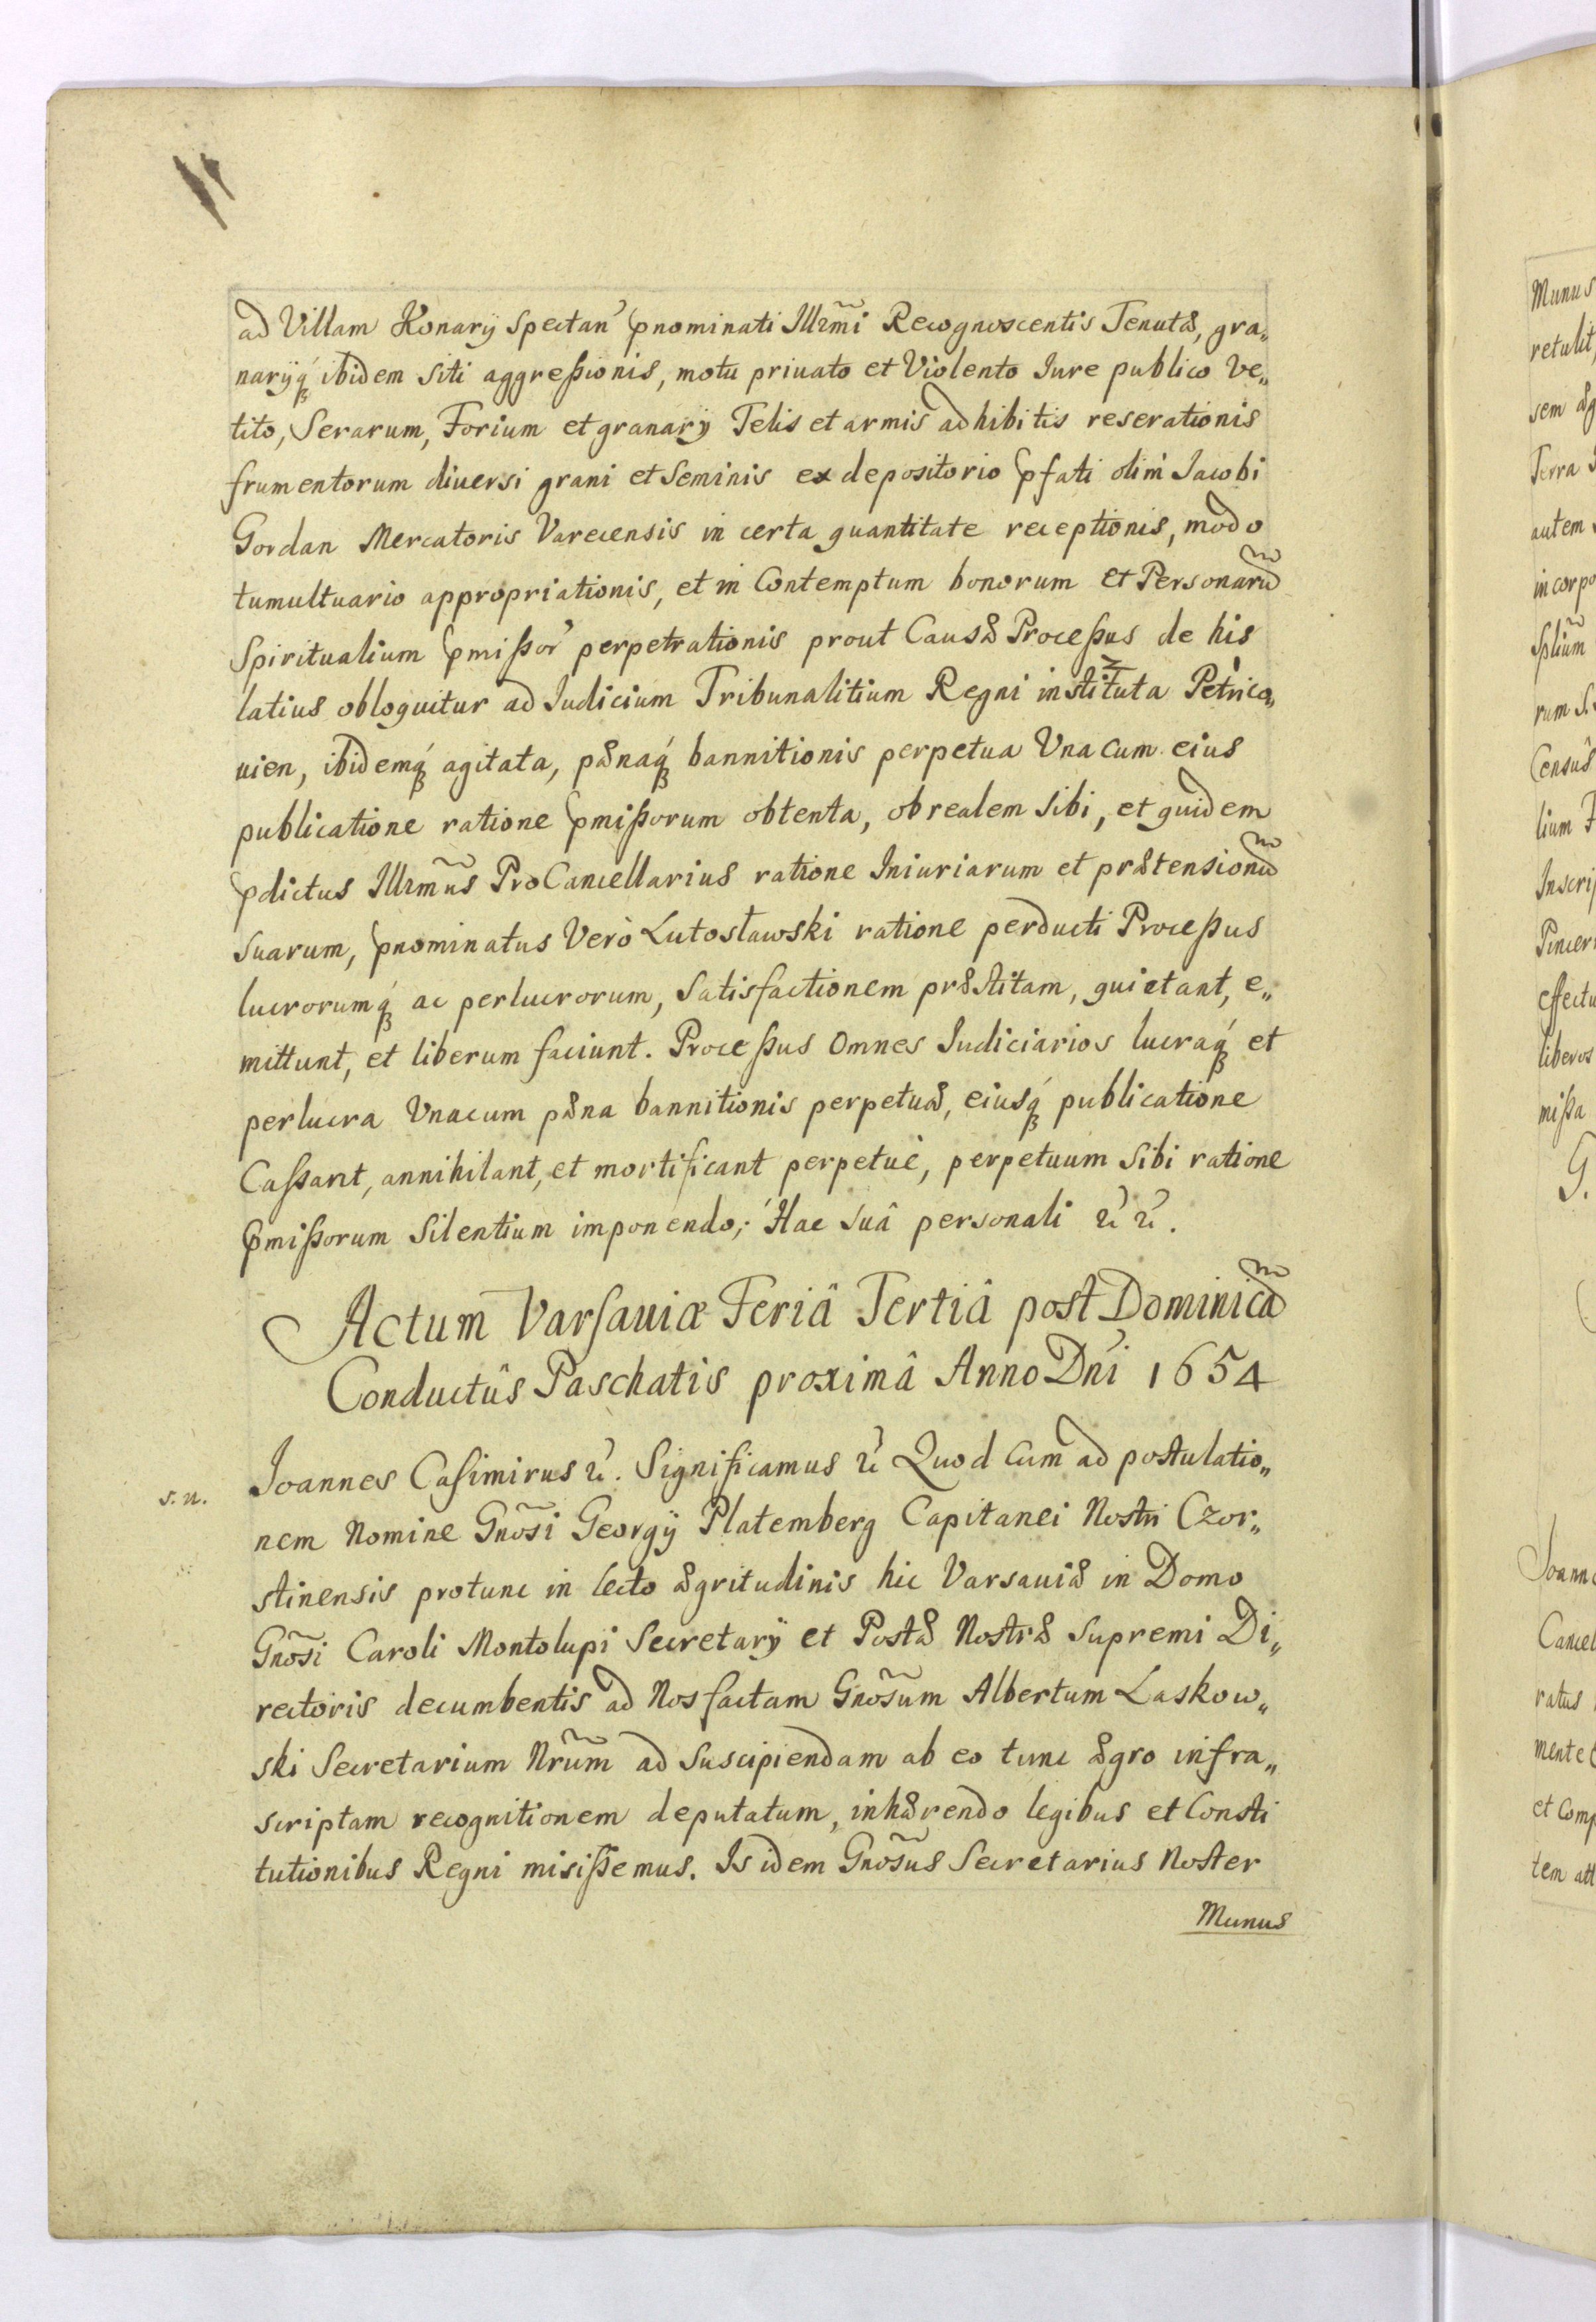 ad Villam Konary Spectan̄ p̄nominati Illr̃mi Recognoscentis Tenutæ, gra„
narÿq́ ibidem siti aggreßionis, motu priuato et Violento Iure publico Ve„
tito, Serarum, Forium et granarÿ Telis et armis adhibitis reserationis
frumentorum diuersi grani et Seminis ex depositorio p̄fati olim Iacobi
Gordan Mercatoris Varecensis in certa quantitate receptionis, modo
tumultuario appropriationis, et in Contemptum bonorum et Personarũ
Spiritualium p̄mißor̄ perpetrationis prout Causæ Proceßus de his
latius obloquitur ad Iudicium Tribunalitium Regni instituta Petrico„
uien, ibidemq́ agitata, pænaq́ bannitionis perpetua Vna cum eius
publicatione ratione p̄mißorum obtenta, ob realem sibi, et quidem
p̄dictus Illr̃mus ProCancellarius ratione Iniuriarum et prætensionũ
suarum, p̄nominatus Verò Lutosławski ratione perducti Proceßus
lucrorumq́ ac perlucrorum, Satisfactionem præstitam, quietant, e„
mittunt, et liberum faciunt. Proceßus Omnes Iudiciarios lucraq́ et
perlucra Vnacum pæna bannitionis perpetuæ, eiusq́ publicatione
Caßant, annihilant, et mortificant perpetuè, perpetuum Sibi ratione
p̄mißorum Silentium imponendo; Hac suâ personali &̄ &̄.
Actum Varsauiæ Feriâ Tertiâ post Dominicã
Conductûs Paschatis proximâ Anno Dn̄i 1654
s. n.
Ioannes Casimirus &̄. Significamus &̄ Quod Cum ad postulatio„
nem Nomine Gño͠si Georgÿ Platemberg Capitanei Nostri Czor„
stinensis protunc in lecto ægritudinis hic Varsauiæ in Domo
Gño͠si Caroli Montolupi Secretarÿ et Postæ Nostræ Supremi Di„
rectoris decumbentis ad Nos factam Gño͠sum Albertum Laskow„
ski Secretarium Nr̃um ad Suscipiendam ab eo tunc ægro infra„
scriptam recognitionem deputatum, inhærendo legibus et Consti
tutionibus Regni misißemus. Is idem Gño͠sus Secretarius Noster
Munus